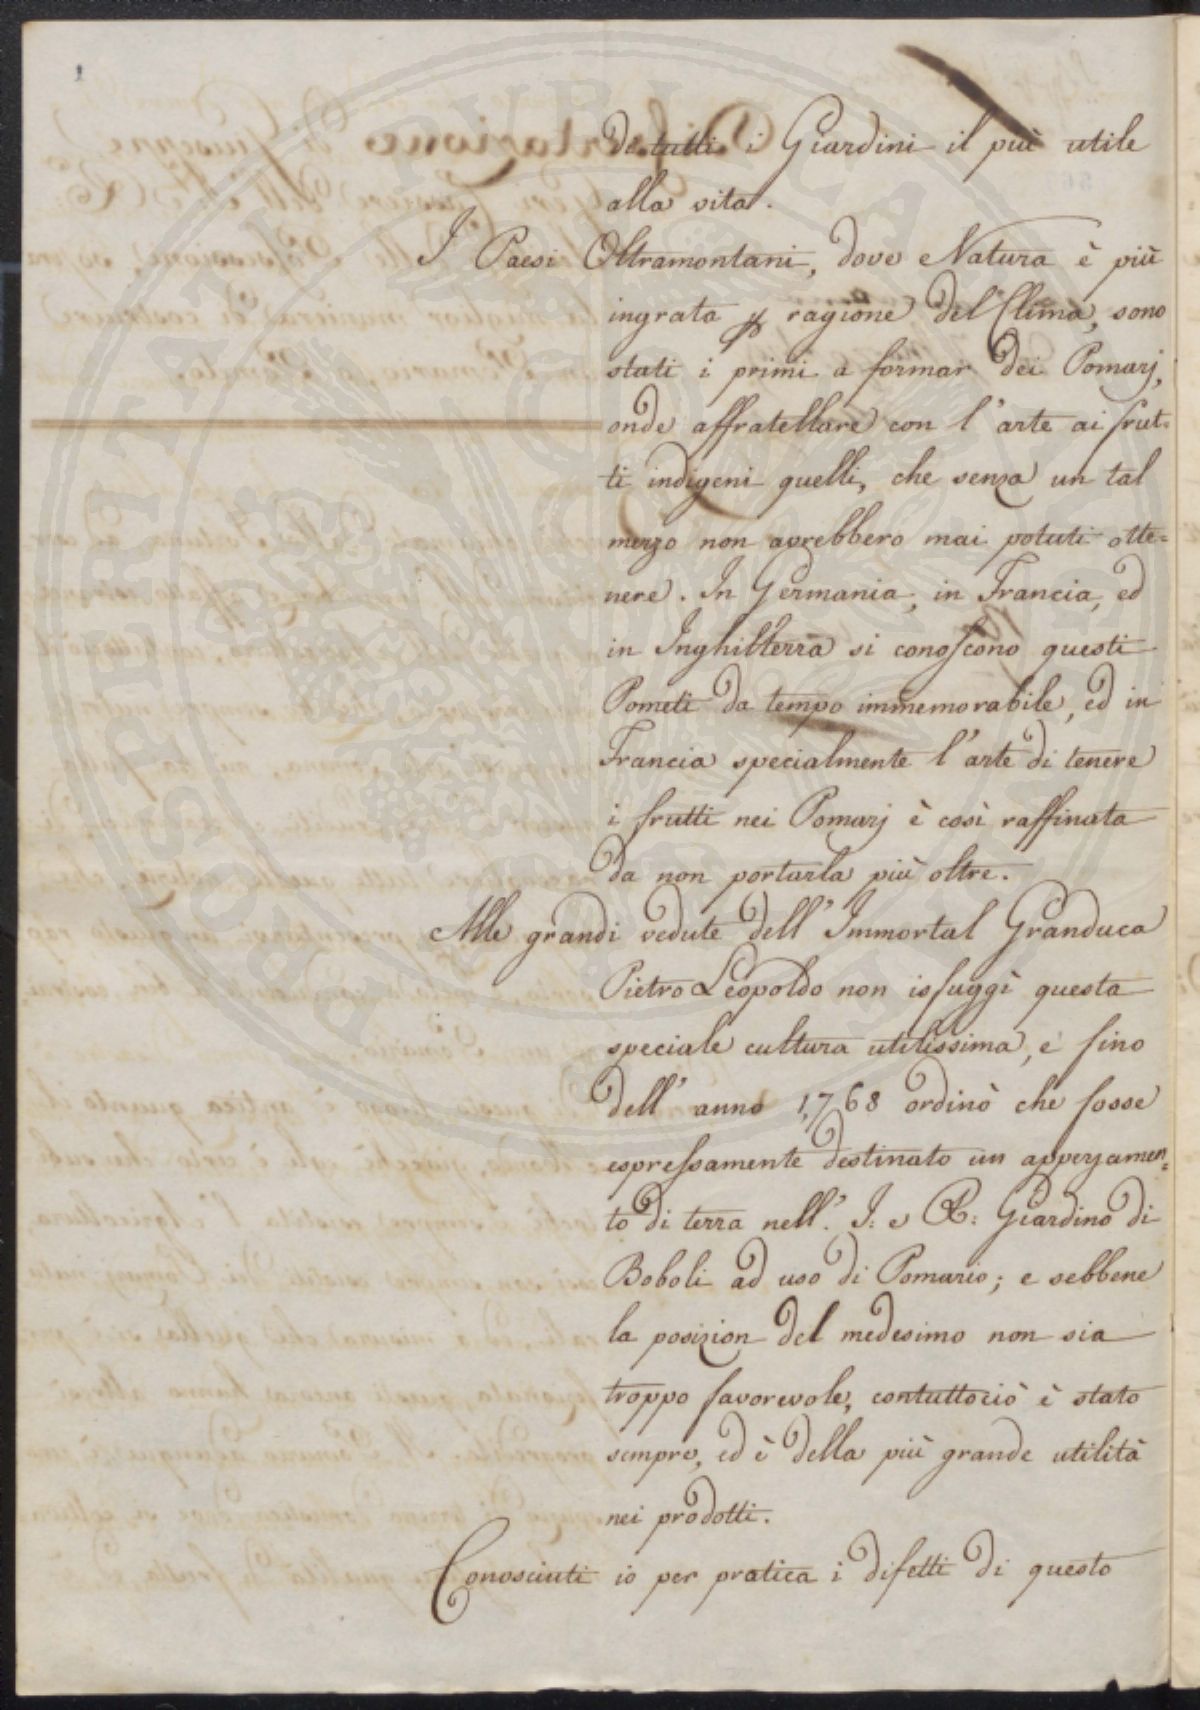 1
de tutti i Giardini il più utile
alla vita.
I Paesi Oltramontani, dove Natura è più
ingrata p ragione del Clima, sono
stati i primi a formar dei Pomarj,
onde affratellare con l'arte ai frut=
ti indigeni quelli, che senza un tal
mezzo non avrebbero mai potuti otte=
nere. In Germania, in Francia, ed
in Inghilterra si conoscono questi
Pometi da tempo immemorabile, ed in
Francia specialmente l'arte di tenere
i frutti nei Pomarj è così raffinata
da non portarla più oltre.
Alle grandi vedute dell'Immortal Granduca
Pietro Leopoldo non isfuggì questa
speciale cultura utilissima, e fino
dell'anno 1768 ordinò che fosse
espressamente destinato un appezzamen=
to di terra nell'I: e R: Giardino di
Boboli ad uso di Pomario; e sebbene
la posizion del medesimo non sia
troppo favorevole, contuttociò è stato
sempre, ed è della più grande utilità
nei prodotti.
Conosciuti io per pratica i difetti di questo